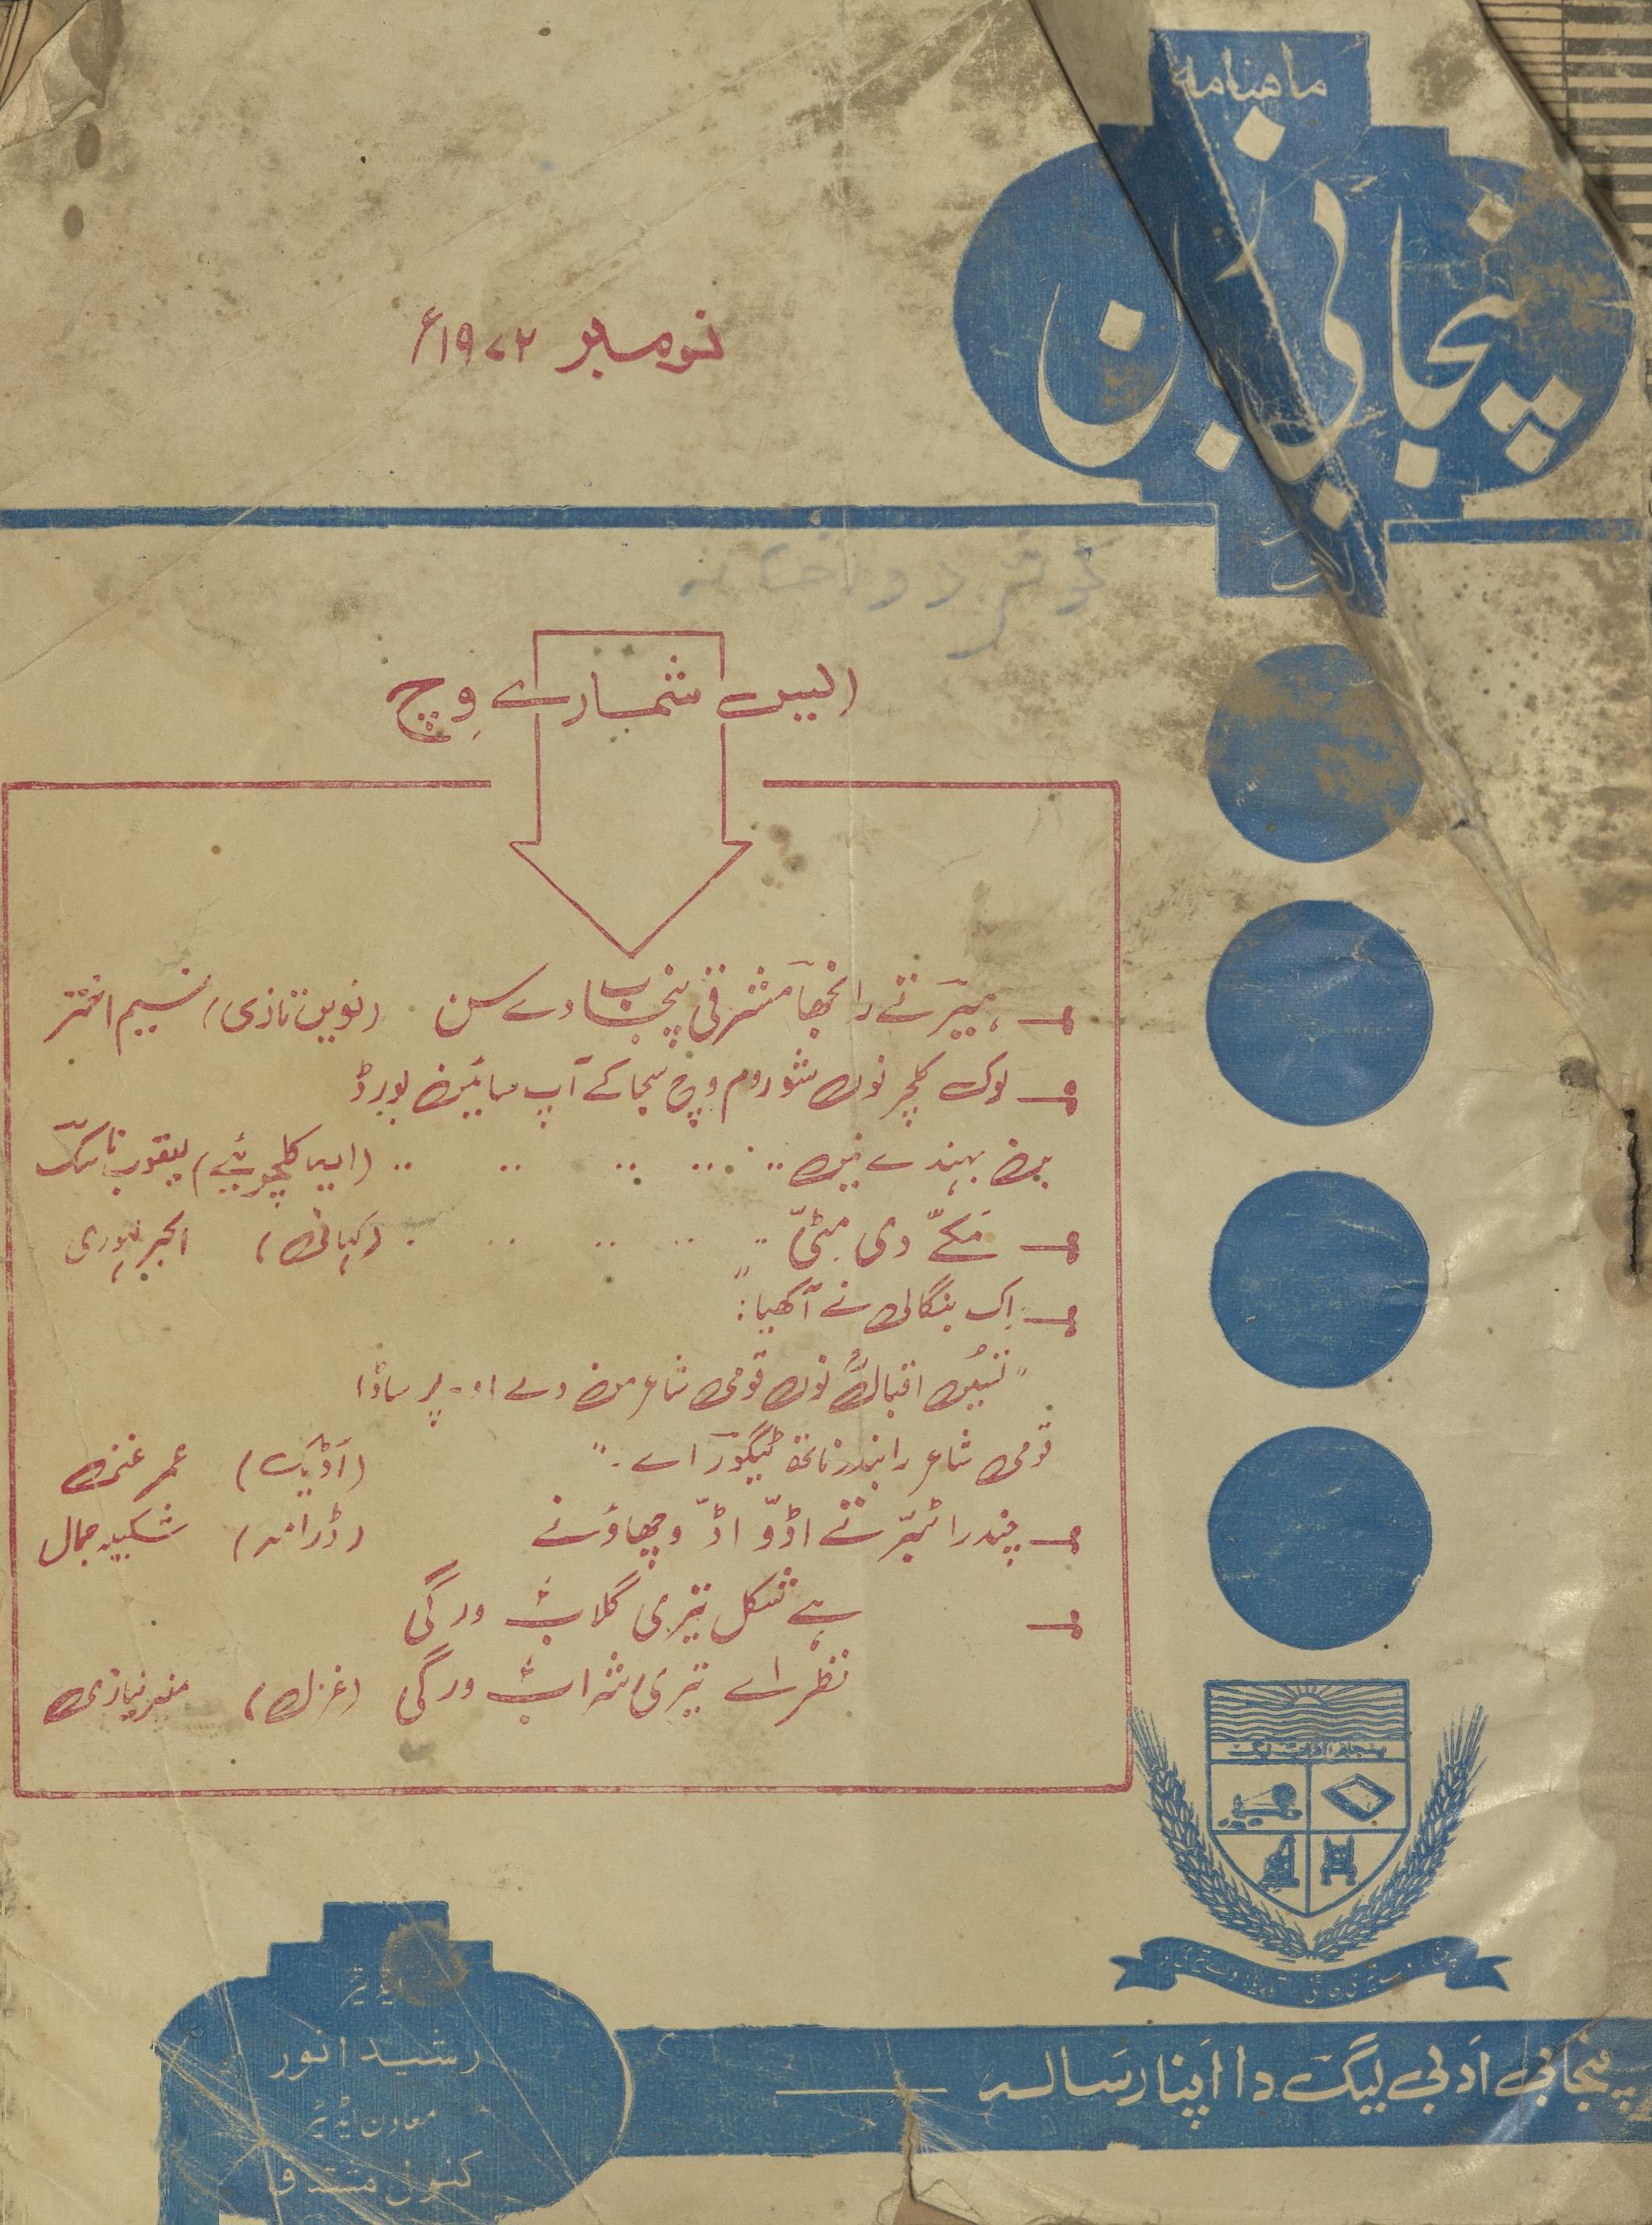 ماهنامه
پنجابی زبان
لاہور
نومبر ۱۹۷۲ء
ایس شمارے وِچ
ہیر تے رانجھا مشرقی پنجاب دے سن (نویں تازی) نسیم اختر
لوک کلچر نوں شوروم وچ سجا کے آپ سائین بورڈ
بن بہندے نیں (ایہا کلچوئیے) یعقوب ناسک
مَکّے دی مِٹّی (کہانی) اکبر لہوری
اِک بنگالی نے آکھیا:
"تسیں اقبالؒ نوں قومی شاعر من دے او۔ پر ساڈا
قومی شاعر رابندر ناتھ ٹیگور اے۔" (اَڈیک) عمر غنی
چندرا ٹبّر تے اڈّو اڈّ وچھاؤنے (ڈرامہ) شکیبہ جمال
ہے شکل تیری گلاب ورگی
نظر اے تیری شراب ورگی (غزل) منیر نیازی
پنجابی ادبی لیگ
پنجابی اَدبی لیگ دا اپنا رسالہ
ایڈیٹر
رشید انور
معاون ایڈیٹر
کنول مشتاق